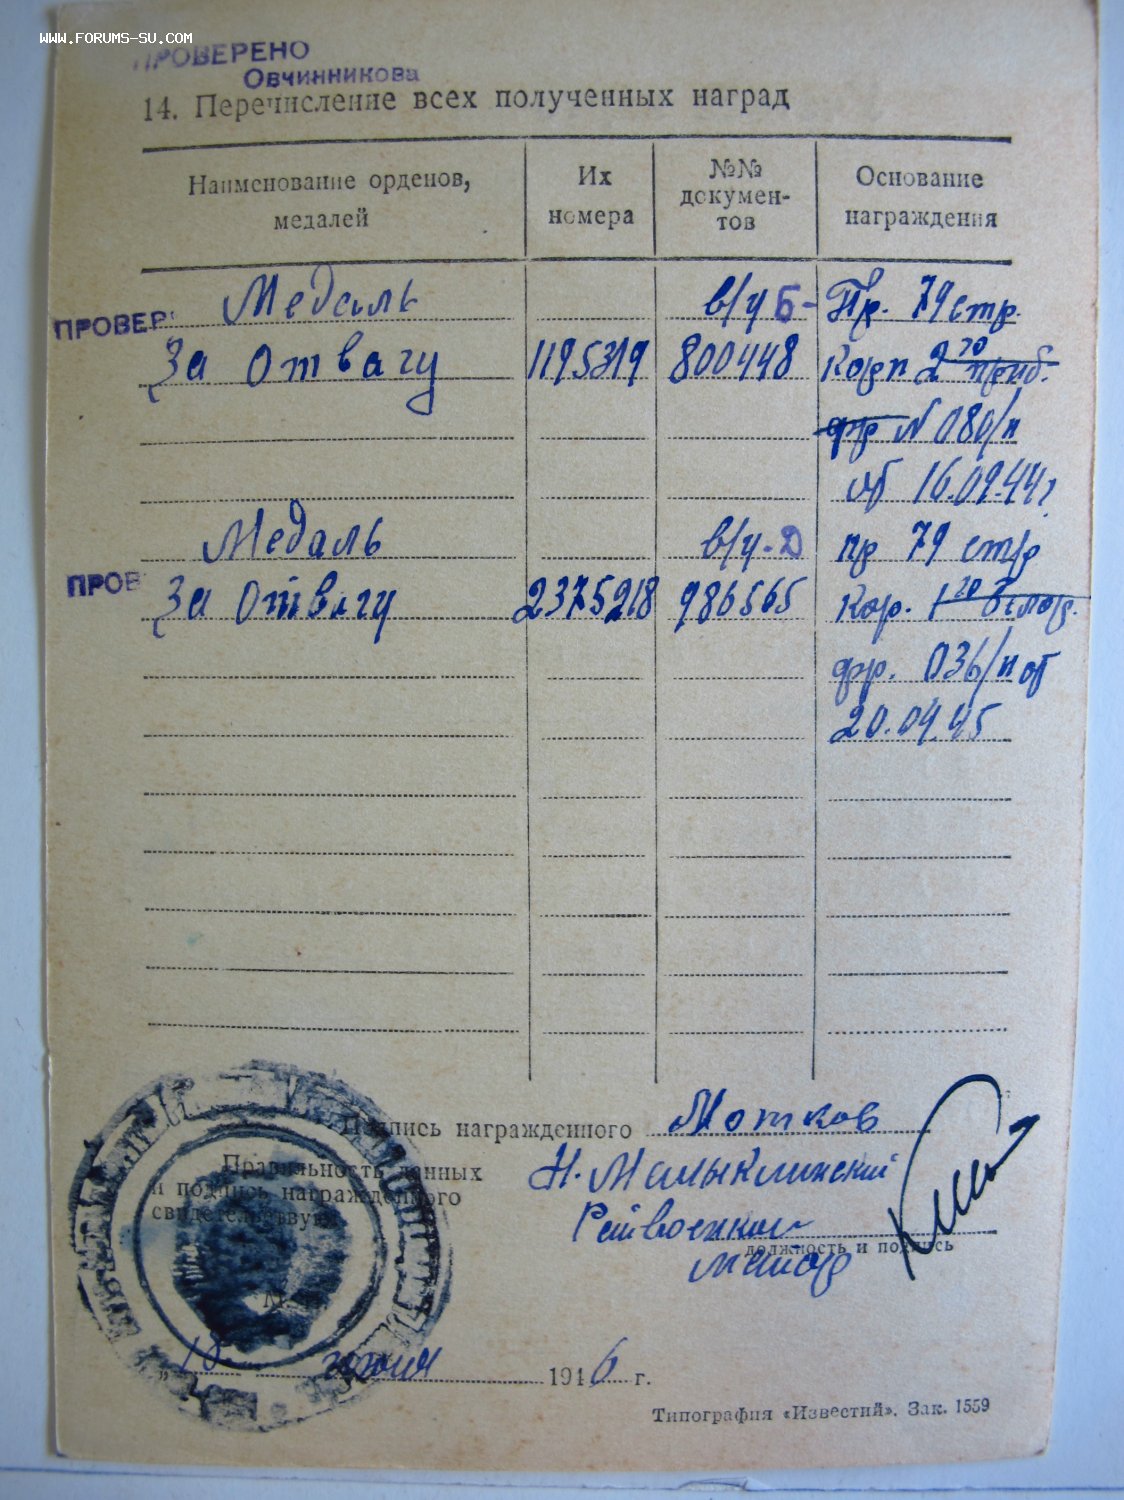 www.forums-su.com
ПРОВЕРЕНО
Овчинникова
14. Перечисление всех полученных наград
Наименование орденов, медалей
Их номера
№№ докумен-тов
Основание награждения
ПРОВЕР
Медаль в/у Б- Пр. 79 стр.
За Отвагу 1195319 800448 Корп 2го приб.
фр N 080/н
от 16.09.44г
Медаль в/у-Д пр 79 стр
ПРОВ
За Отвагу 2375218 986565 Кор. 1го Белор.
фр. 036/н от
20.04.45
Подпись награжденного Мотков
Правильность данных
и подпись награжденного
свидетельствую
Н. Малыклинский
Райвоенком
майор
должность и подпись
М.
10 июня 1946 г.
Типография «Известий». Зак. 1559